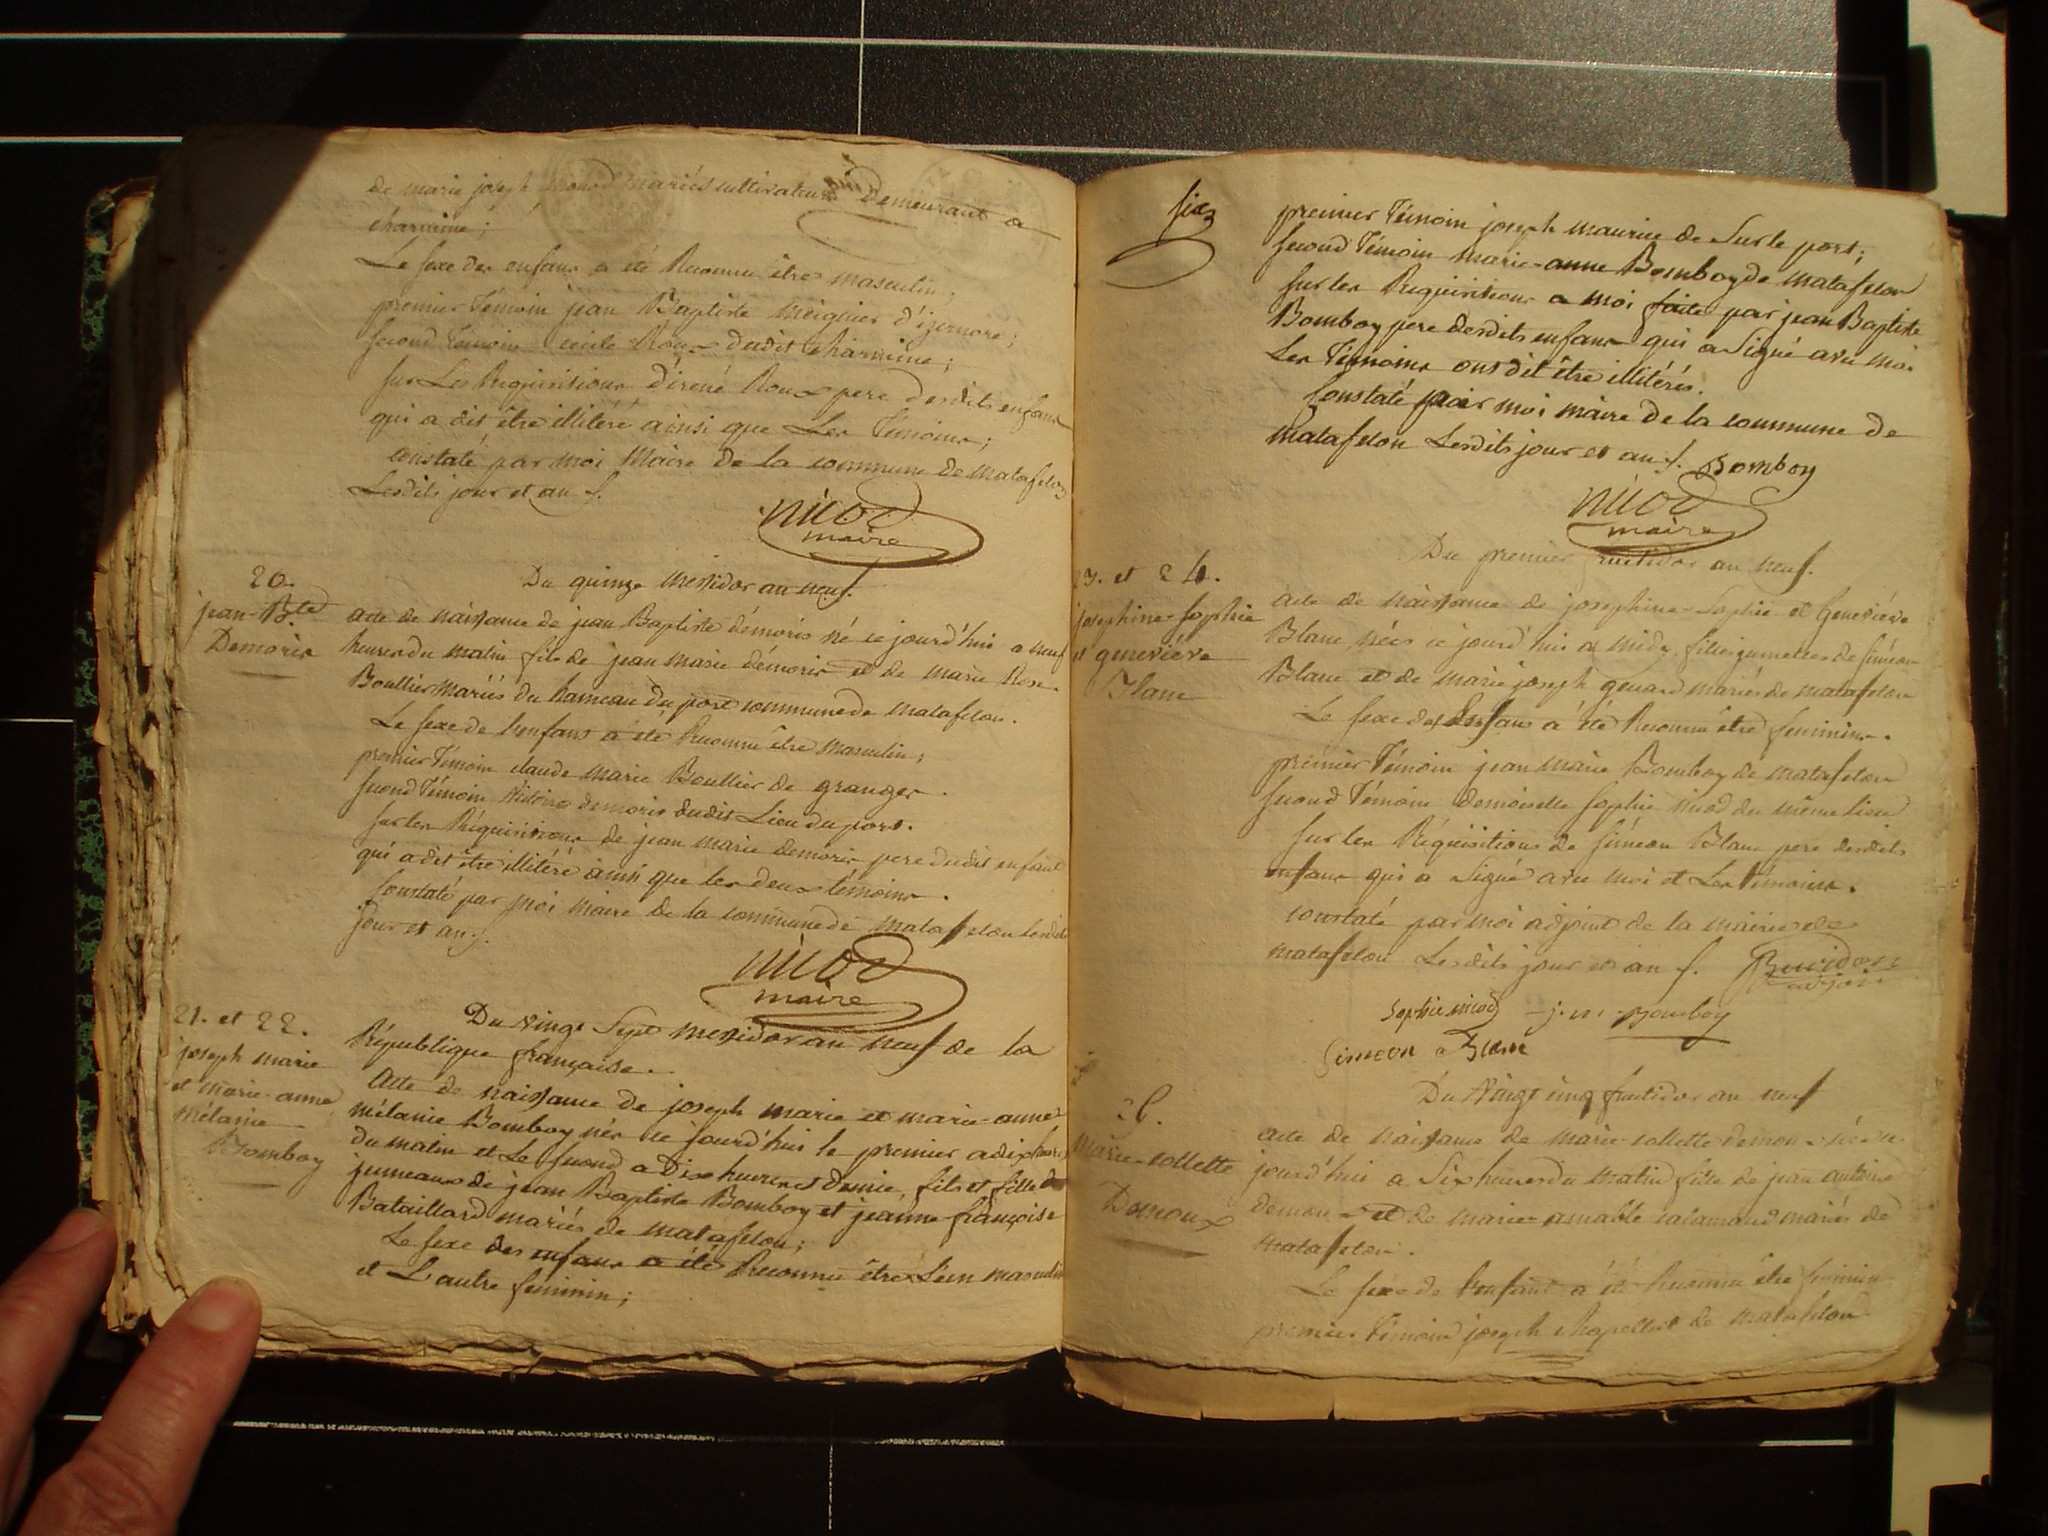 de marie joseph monod mariés cultivateurs demeurant a
charmine;
Le sexe des enfans a été Reconnu être masculin;
premier Témoin jean Baptiste moignier d'izernore;
second Témoin cécile Roux dudit charmine;
sur Les Requisitions d'irené Roux pere desdits enfans
qui a dit être illitéré ainsi que Les Témoins;
constaté par moi Maire de la commune de matafelon
Lesdits jour et an f.
nicod
maire
20.
jean-Bte
Demoris
Du quinze messidor an neuf.
acte de naissance de jean Baptiste démoris né ce jourd'hui a neuf
heures du matin fils de jean marie démoris et de marie Rose
Boullier mariés du hameau du port commune de matafelon.
Le sexe de l'enfant a été Reconnu être masculin;
premier Témoin claude marie Boullier de granger.
second Témoin Victoire demoris dudit Lieu du port.
sur les Réquisitions de jean marie demoris pere dudit enfant
qui a dit être illitéré ainsi que les deux témoins.
Constaté par moi maire de la commune de matafelon lesdits
jour et an f.
nicod
maire
21. et 22.
joseph marie
et marie-anne
mélanie
Bomboy
Du vingt Sept messidor an neuf de la
République française.
Acte de naissance de joseph marie et marie-anne
mélanie Bomboy nés ce jourd'hui le premier a dix heures
du matin et Le second a Dix heures et demie, fils et fille
jumeaux de jean Baptiste Bomboy et jeanne-françoise
Bataillard mariés de matafelon;
Le sexe des enfans a été Reconnu être L'un masculin
et L'autre feminin;
six
premier Témoin joseph maurice de Sur le port;
second Témoin marie-anne Bomboy de matafelon
sur les Requisitions a moi faite par jean Baptiste
Bomboy pere desdits enfans qui a Signé avec moi.
Les Témoins ont dit être illitérés.
Constaté par moi maire de la commune de
matafelon Lesdits jour et an f. Bomboy
nicod
maire
23. et 24.
josephine-sophie
et geneviéve
Blanc
Du premier fructidor an neuf.
Acte de naissance de josephine-Sophie et Geneviéve
Blanc nées ce jourd'hui a midy, filles jumelles de siméon
Blanc et de marie joseph genard mariés de matafelon
Le sexe des Enfans a été Reconnu être feminin.
premier Témoin jean marie Bomboy de matafelon
second Témoin demoiselle Sophie nicod du même Lieu
sur les Réquisitions de siméon Blanc pere desdits
enfans qui a Signé avec moi et Les témoins.
constaté par moi adjoint de la mairie de
matafelon Lesdits jour et an f.
adjoint
sophie nicod j. m. Bomboy
simeon Blanc
Du Vingt cinq fructidor an neuf
25.
Marie-collette
Demoux
acte de naissance de marie collette demoux née ce
jourd'hui a Six heures du matin fille de jean antoine
demoux et de marie-amable calamand mariés de
matafelon.
Le sexe de l'enfant a été Reconnu être feminin
premier Témoin joseph chapellut de matafelon